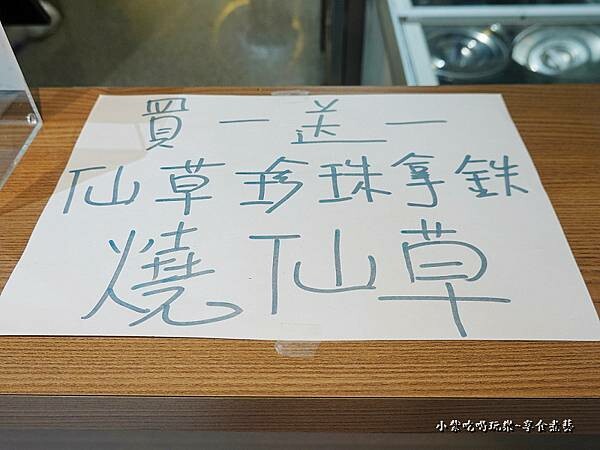 買一送一
仙草珍珠拿鉄
燒仙草
小紫吃喝玩樂~享食煮藝